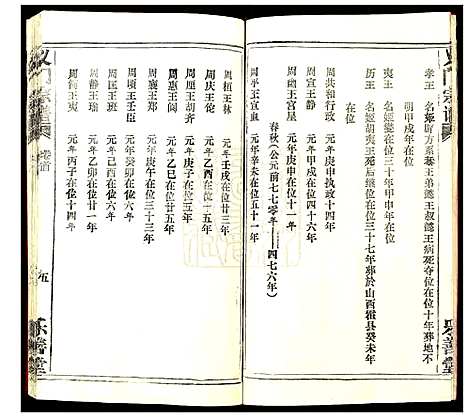 孝王 名姬辟方系懿王弟懿王叔懿王病死夺位在位十年葬地不
明甲戌年在位
夷王 名姬燮在位三十年甲申年在位
历王 名姬胡夷王死后继位在位三十七年葬於山西霍县癸未年
在位
周共和行政 元年庚申执政十四年
周宣王静 元年甲戌在位四十六年
周幽王宫星 元年庚申在位十一年
春秋(公元前七七零年—四七六年)
周平王宜臼 元年辛未在位五十一年
周桓王林 元年壬戌在位廿三年
周庄王佗 元年乙酉在位十五年
周厘王胡齐 元年庚子在位五年
周惠王阆 元年乙巳在位廿五年
周襄王郑 元年庚午在位三十三年
周顷王壬臣 元年癸卯在位六年
周匡王班 元年己酉在位六年
周静王瑜 元年乙卯在位廿一年
周简王夷 元年丙子在位十四年
义门宗谱
卷首
五
乐善堂
乐善堂